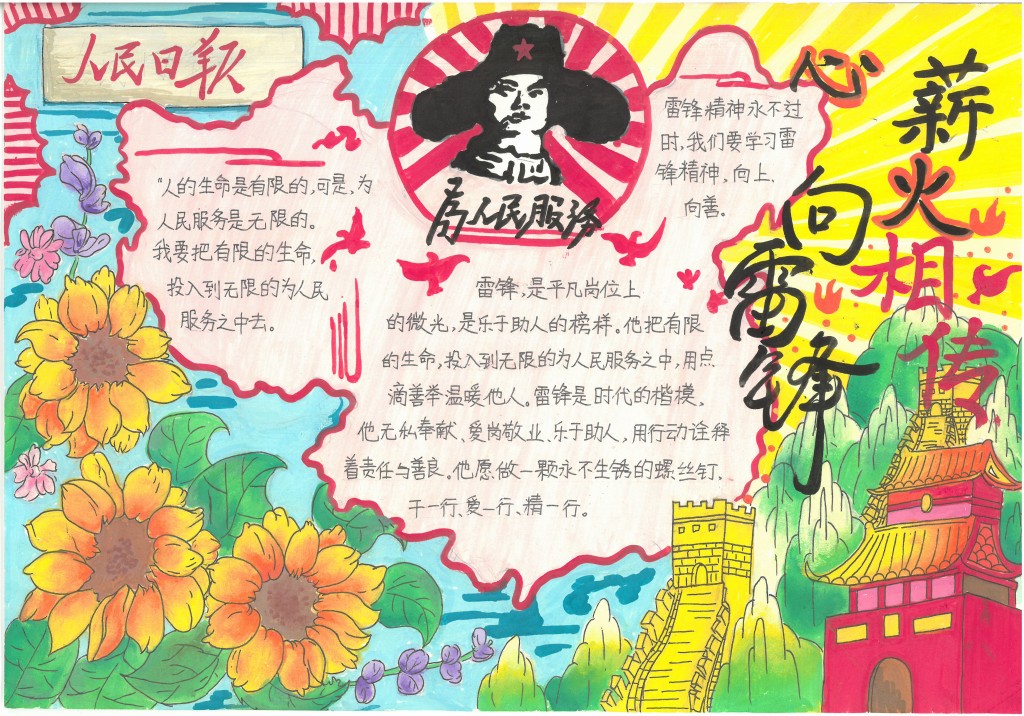 人民日报
"人的生命是有限的,可是,为
人民服务是无限的。
我要把有限的生命,
投入到无限的为人民
服务之中去。
为人民服务
雷锋精神永不过
时,我们要学习雷
锋精神,向上、
向善。
雷锋,是平凡岗位上
的微光,是乐于助人的榜样。他把有限
的生命,投入到无限的为人民服务之中,用点
滴善举温暖他人。雷锋是时代的楷模,
他无私奉献、爱岗敬业、乐于助人,用行动诠释
着责任与善良。他愿做一颗永不生锈的螺丝钉,
干一行、爱一行、精一行。
薪火相传
心向雷锋